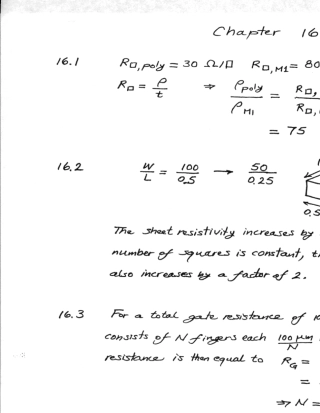 Chapter 16
16.1 R□,poly = 30 Ω/□ R□,M1 = 80
R□ = ρ/t ⇒ ρpoly/ρM1 = R□,/R□,
= 75
16.2 W/L = 100/0.5 → 50/0.25
0.5
The sheet resistivity increases by
number of squares is constant, t
also increases by a factor of 2.
16.3 For a total gate resistance of
consists of N fingers each 100 μm/N
resistance is then equal to RG =
=
⇒ N =